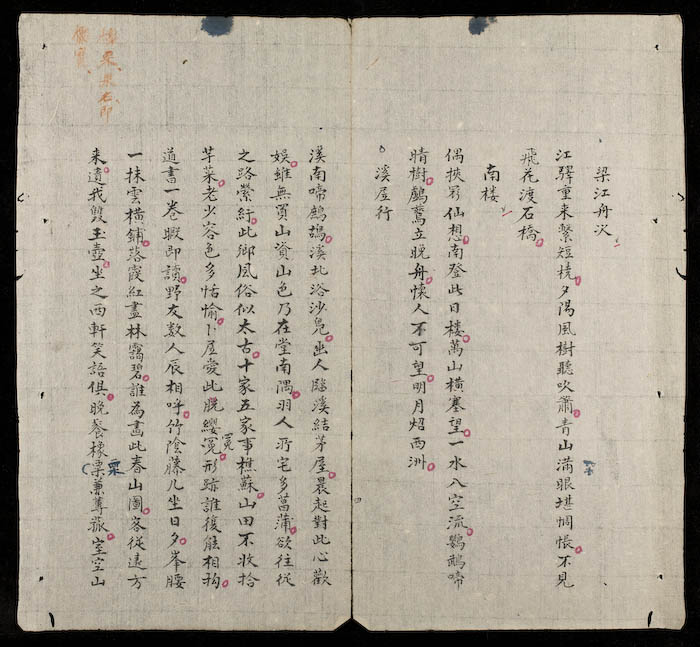 梁江舟次
江驛重来繫短橈夕陽風樹聽吹簫青山滿眼堪惆悵不見
飛花渡石橋
南楼
偶挾羽仙想南登此日楼萬山橫塞望一水八空流鸚鵡啼
晴樹鸕鶿立晚舟懷人不可望明月炤西洲
溪屋行
溪南啼鷓鴣溪北浴沙鳧幽人臨溪結茅屋晨起對此心歡
娛雖無買山資山色乃在堂南隅羽人所宅多菖蒲欲往従
之路縈紆此鄉風俗似太古十家五家事樵蘇山田不收拾
芋菜老少容色多恬愉卜居愛此脱纓冕形跡誰復能相拘
冕
道書一卷暇即讀野友数人辰相呼竹陰藤几坐日夕峯腰
一抹雲橫鋪落霞紅盡林靄碧誰為畫此春山圖客従遠方
来遺我雙玉壺坐之西軒笑語俱晚餐橡栗兼蓴菰室空山
栗